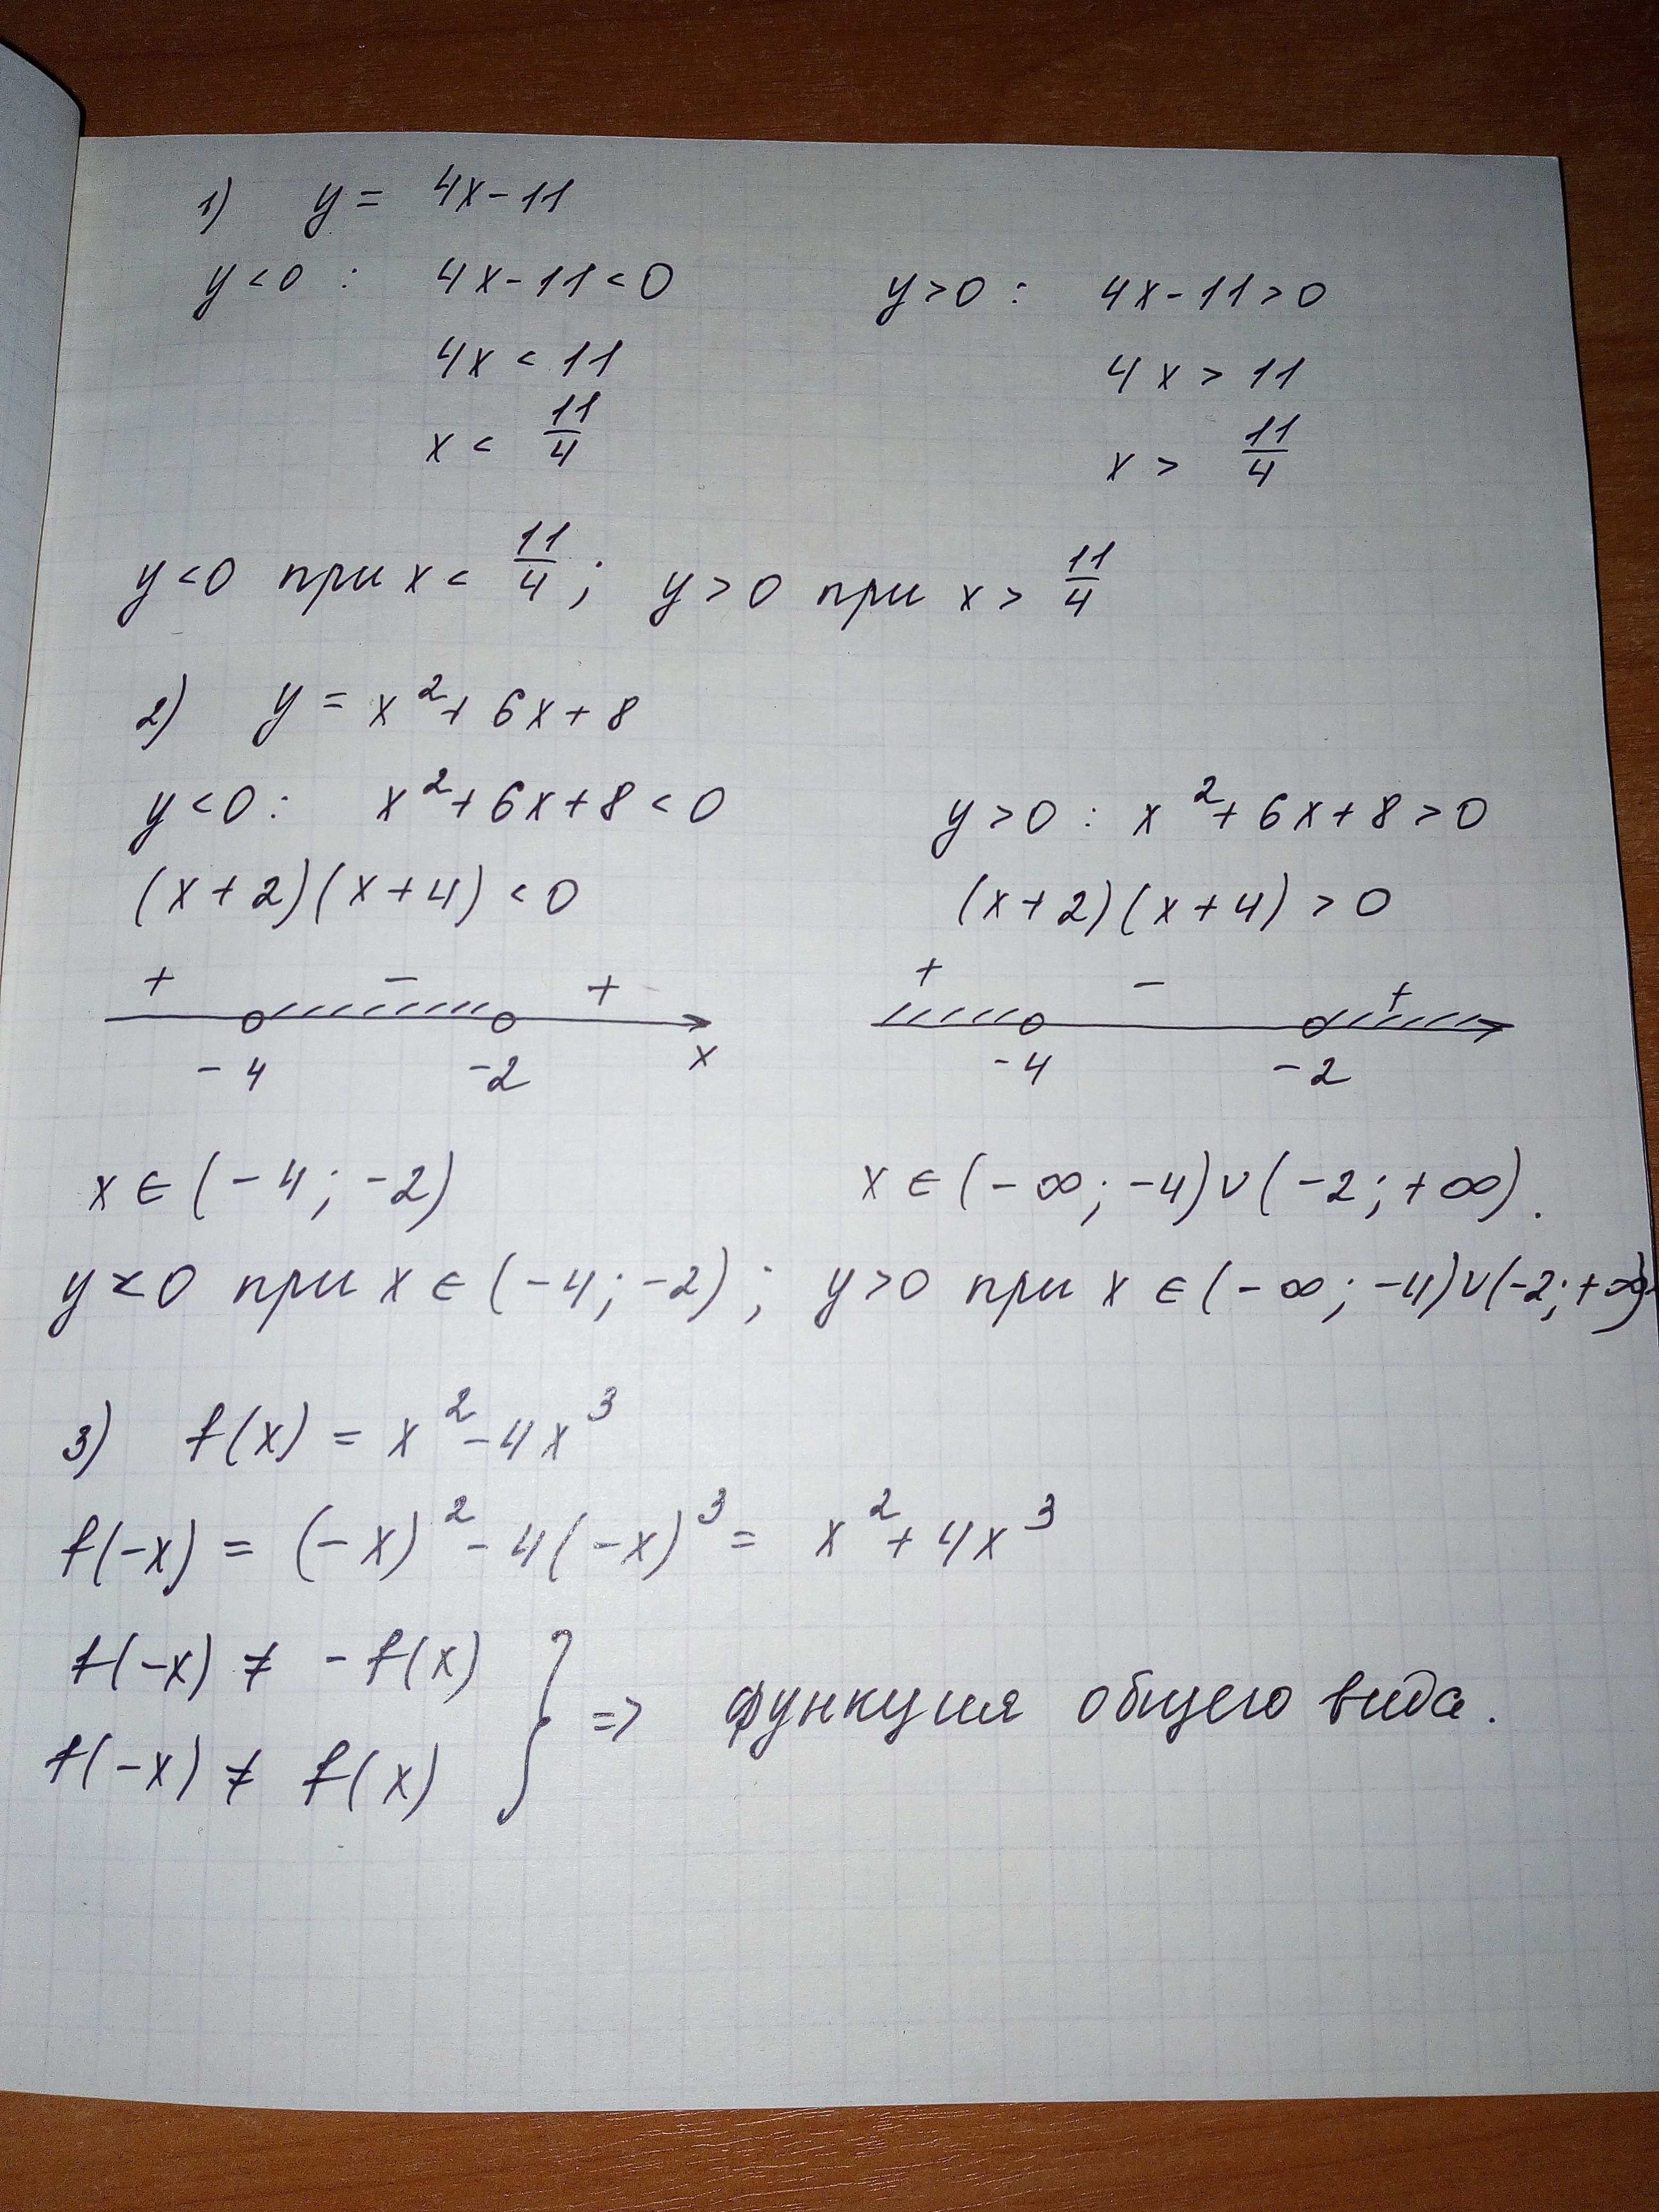 1) y = 4x - 11
y < 0 : 4x - 11 < 0 y > 0 : 4x - 11 > 0
4x < 11 4x > 11
x < 11/4 x > 11/4
y < 0 при x < 11/4 ; y > 0 при x > 11/4
2) y = x² + 6x + 8
y < 0 : x² + 6x + 8 < 0 y > 0 : x² + 6x + 8 > 0
(x + 2)(x + 4) < 0 (x + 2)(x + 4) > 0
+ - + + - +
-4 -2 x -4 -2
x ∈ (-4 ; -2) x ∈ (-∞ ; -4) ∪ (-2 ; +∞).
y < 0 при x ∈ (-4 ; -2) ; y > 0 при x ∈ (-∞ ; -4) ∪ (-2 ; +∞)
3) f(x) = x² - 4x³
f(-x) = (-x)² - 4(-x)³ = x² + 4x³
f(-x) ≠ -f(x)
f(-x) ≠ f(x) } => функция общего вида.